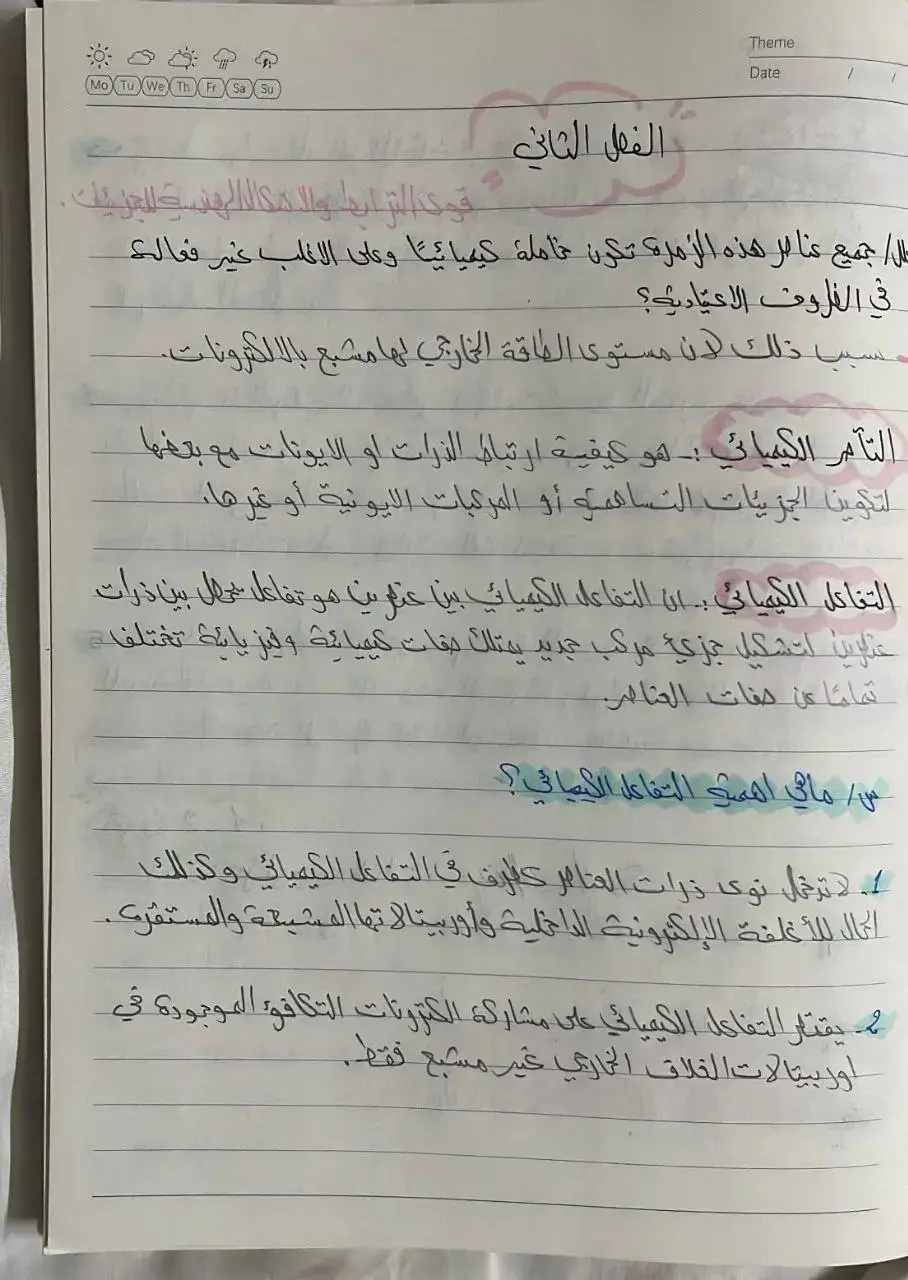 Theme
Date / /
Mo Tu We Th Fr Sa Su
الفصل الثاني
قوى الترابط والاشكال الهندسية للجزيئات.
علل/ جميع عناصر هذه الزمرة تكون خاملة كيميائيًا وعلى الاغلب غير فعالة
في الظروف الاعتيادية؟
سبب ذلك لان مستوى الطاقة الخارجي لها مشبع بالالكترونات.
التآصر الكيميائي :- هو كيفية ارتباط الذرات او الايونات مع بعضها
لتكوين الجزيئات التساهمية أو المركبات الايونية أو غيرها.
التفاعل الكيميائي :- ان التفاعل الكيميائي بين عنصرين هو تفاعل يحصل بين ذرات
عنصرين لتشكيل جزيء مركب جديد يمتلك صفات كيميائية وفيزيائية تختلف
تمامًا عن صفات العناصر.
س/ ماهي اهمية التفاعل الكيميائي؟
1. لا تدخل نوى ذرات العناصر كطرف في التفاعل الكيميائي وكذلك
الحال للأغلفة الإلكترونية الداخلية وأوربيتالاتها المشبعة والمستقرة.
2- يقتصر التفاعل الكيميائي على مشاركة الكترونات التكافؤ الموجودة في
اوربيتالات الغلاف الخارجي غير مشبع فقط.